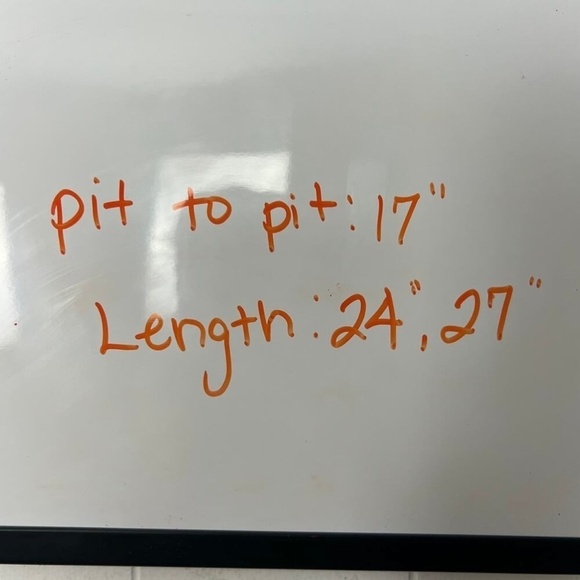 pit to pit: 17"
Length: 24", 27"